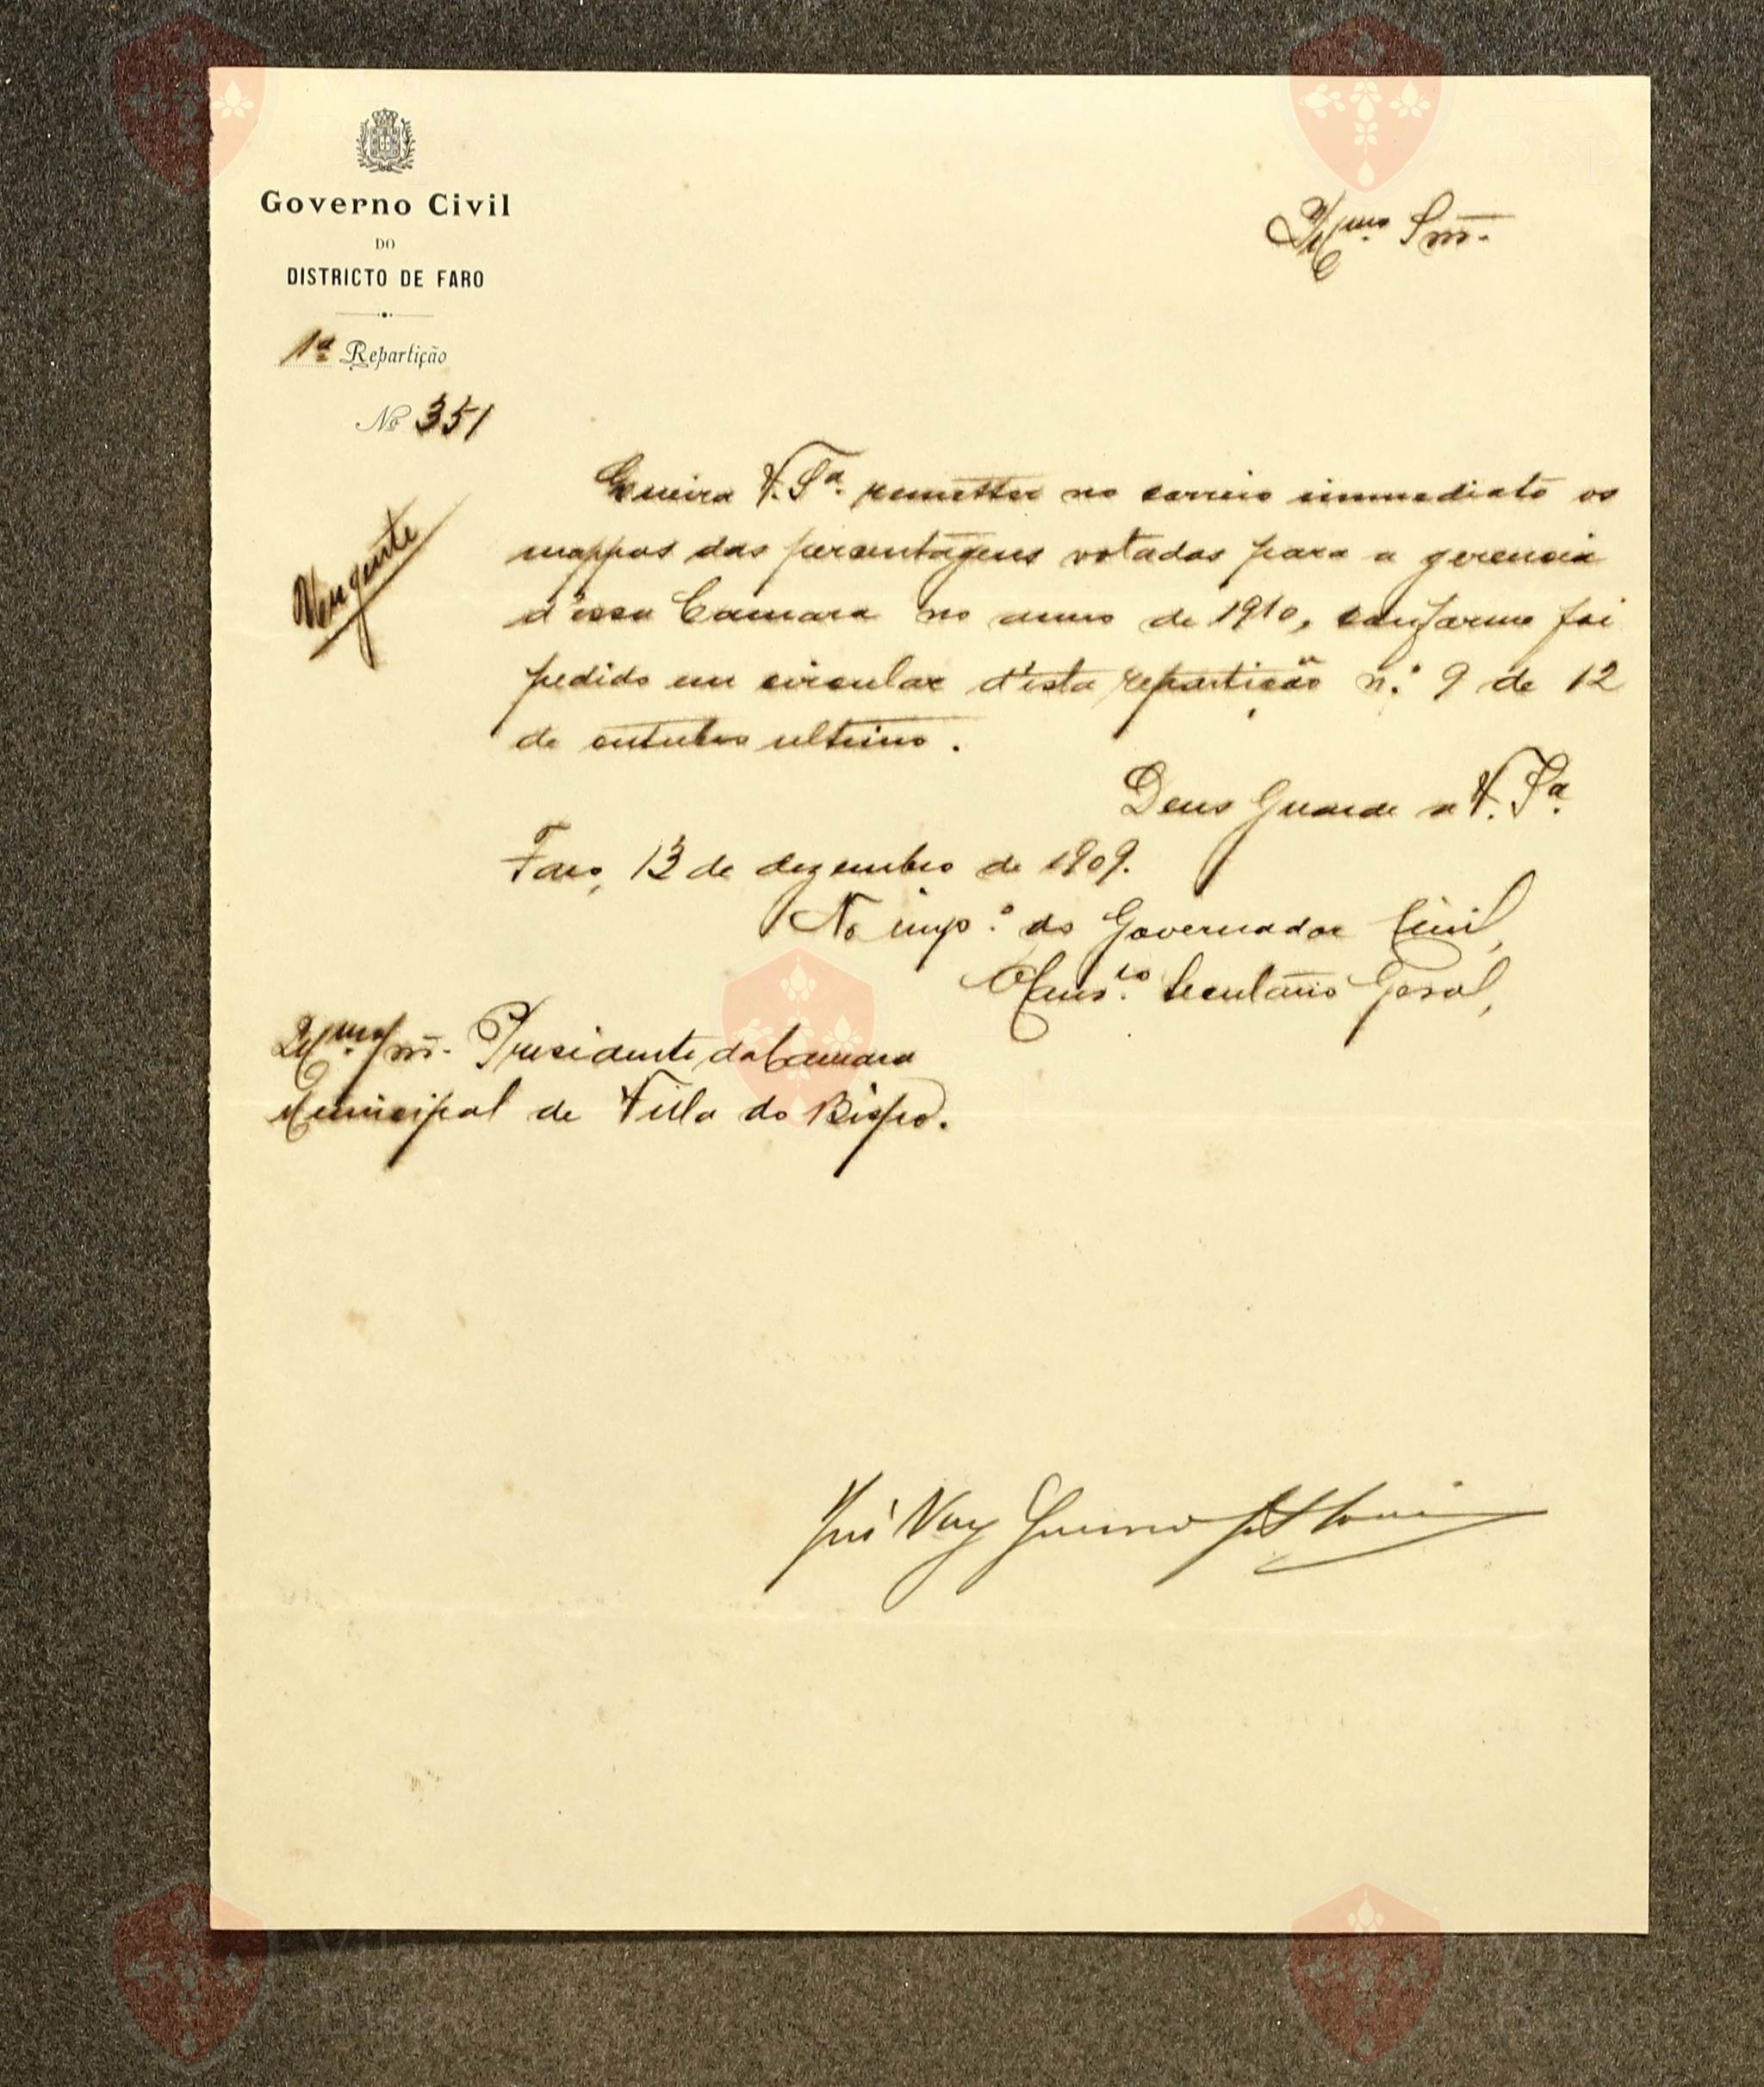 Governo Civil
DO
DISTRICTO DE FARO
1ª Repartição
Nº 351
Illmo. Snr.
Urgente
Queira V. Sª. remetter no correio immediato os
mappas das percentagens votadas para a gerencia
d'essa Camara no anno de 1910, conforme foi
pedido em circular d'esta repartição n.º 9 de 12
de outubro ultimo.
Deus Guarde a V. Sª.
Faro, 13 de dezembro de 1909.
No imp.º do Governador Civil,
Secretario Geral,
Illmo. Snr. Presidente da Camara
Municipal de Villa do Bispo.
José Vaz Guerreiro